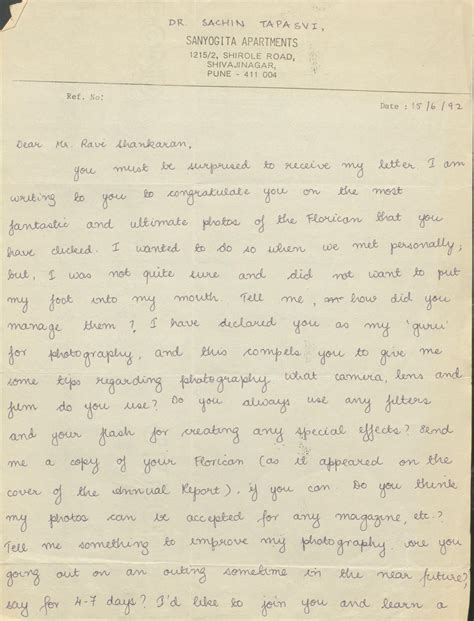 DR. SACHIN TAPASVI,
SANYOGITA APARTMENTS
1215/2, SHIROLE ROAD,
SHIVAJINAGAR,
PUNE - 411 004
Ref. No:
Date : 15/6/92
Dear Mr. Ravi Shankaran,
you must be surprised to receive my letter. I am
writing to you to congratulate you on the most
fantastic and ultimate photos of the Florican that you
have clicked. I wanted to do so when we met personally;
but, I was not quite sure and did not want to put
my foot into my mouth. Tell me, how did you
manage them? I have declared you as my 'guru'
for photography, and this compels you to give me
some tips regarding photography what camera, lens and
film do you use? Do you always use any filters
and your flash for creating any special effects? Send
me a copy of your Florican (as it appeared on the
cover of the Annual Report), if you can. Do you think
my photos can be accepted for any magazine, etc.?
Tell me something to improve my photography. Are you
going out on an outing sometime in the near future?
say for 4-7 days? I'd like to join you and learn a